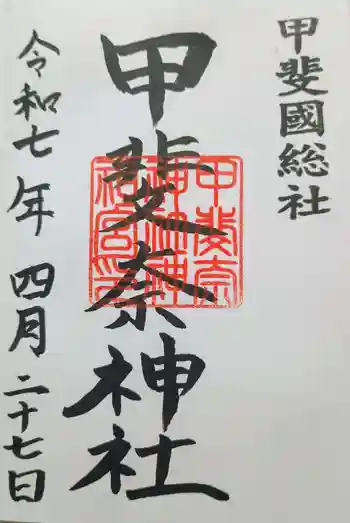 甲斐國総社
甲斐奈神社
令和七年 四月二十七日